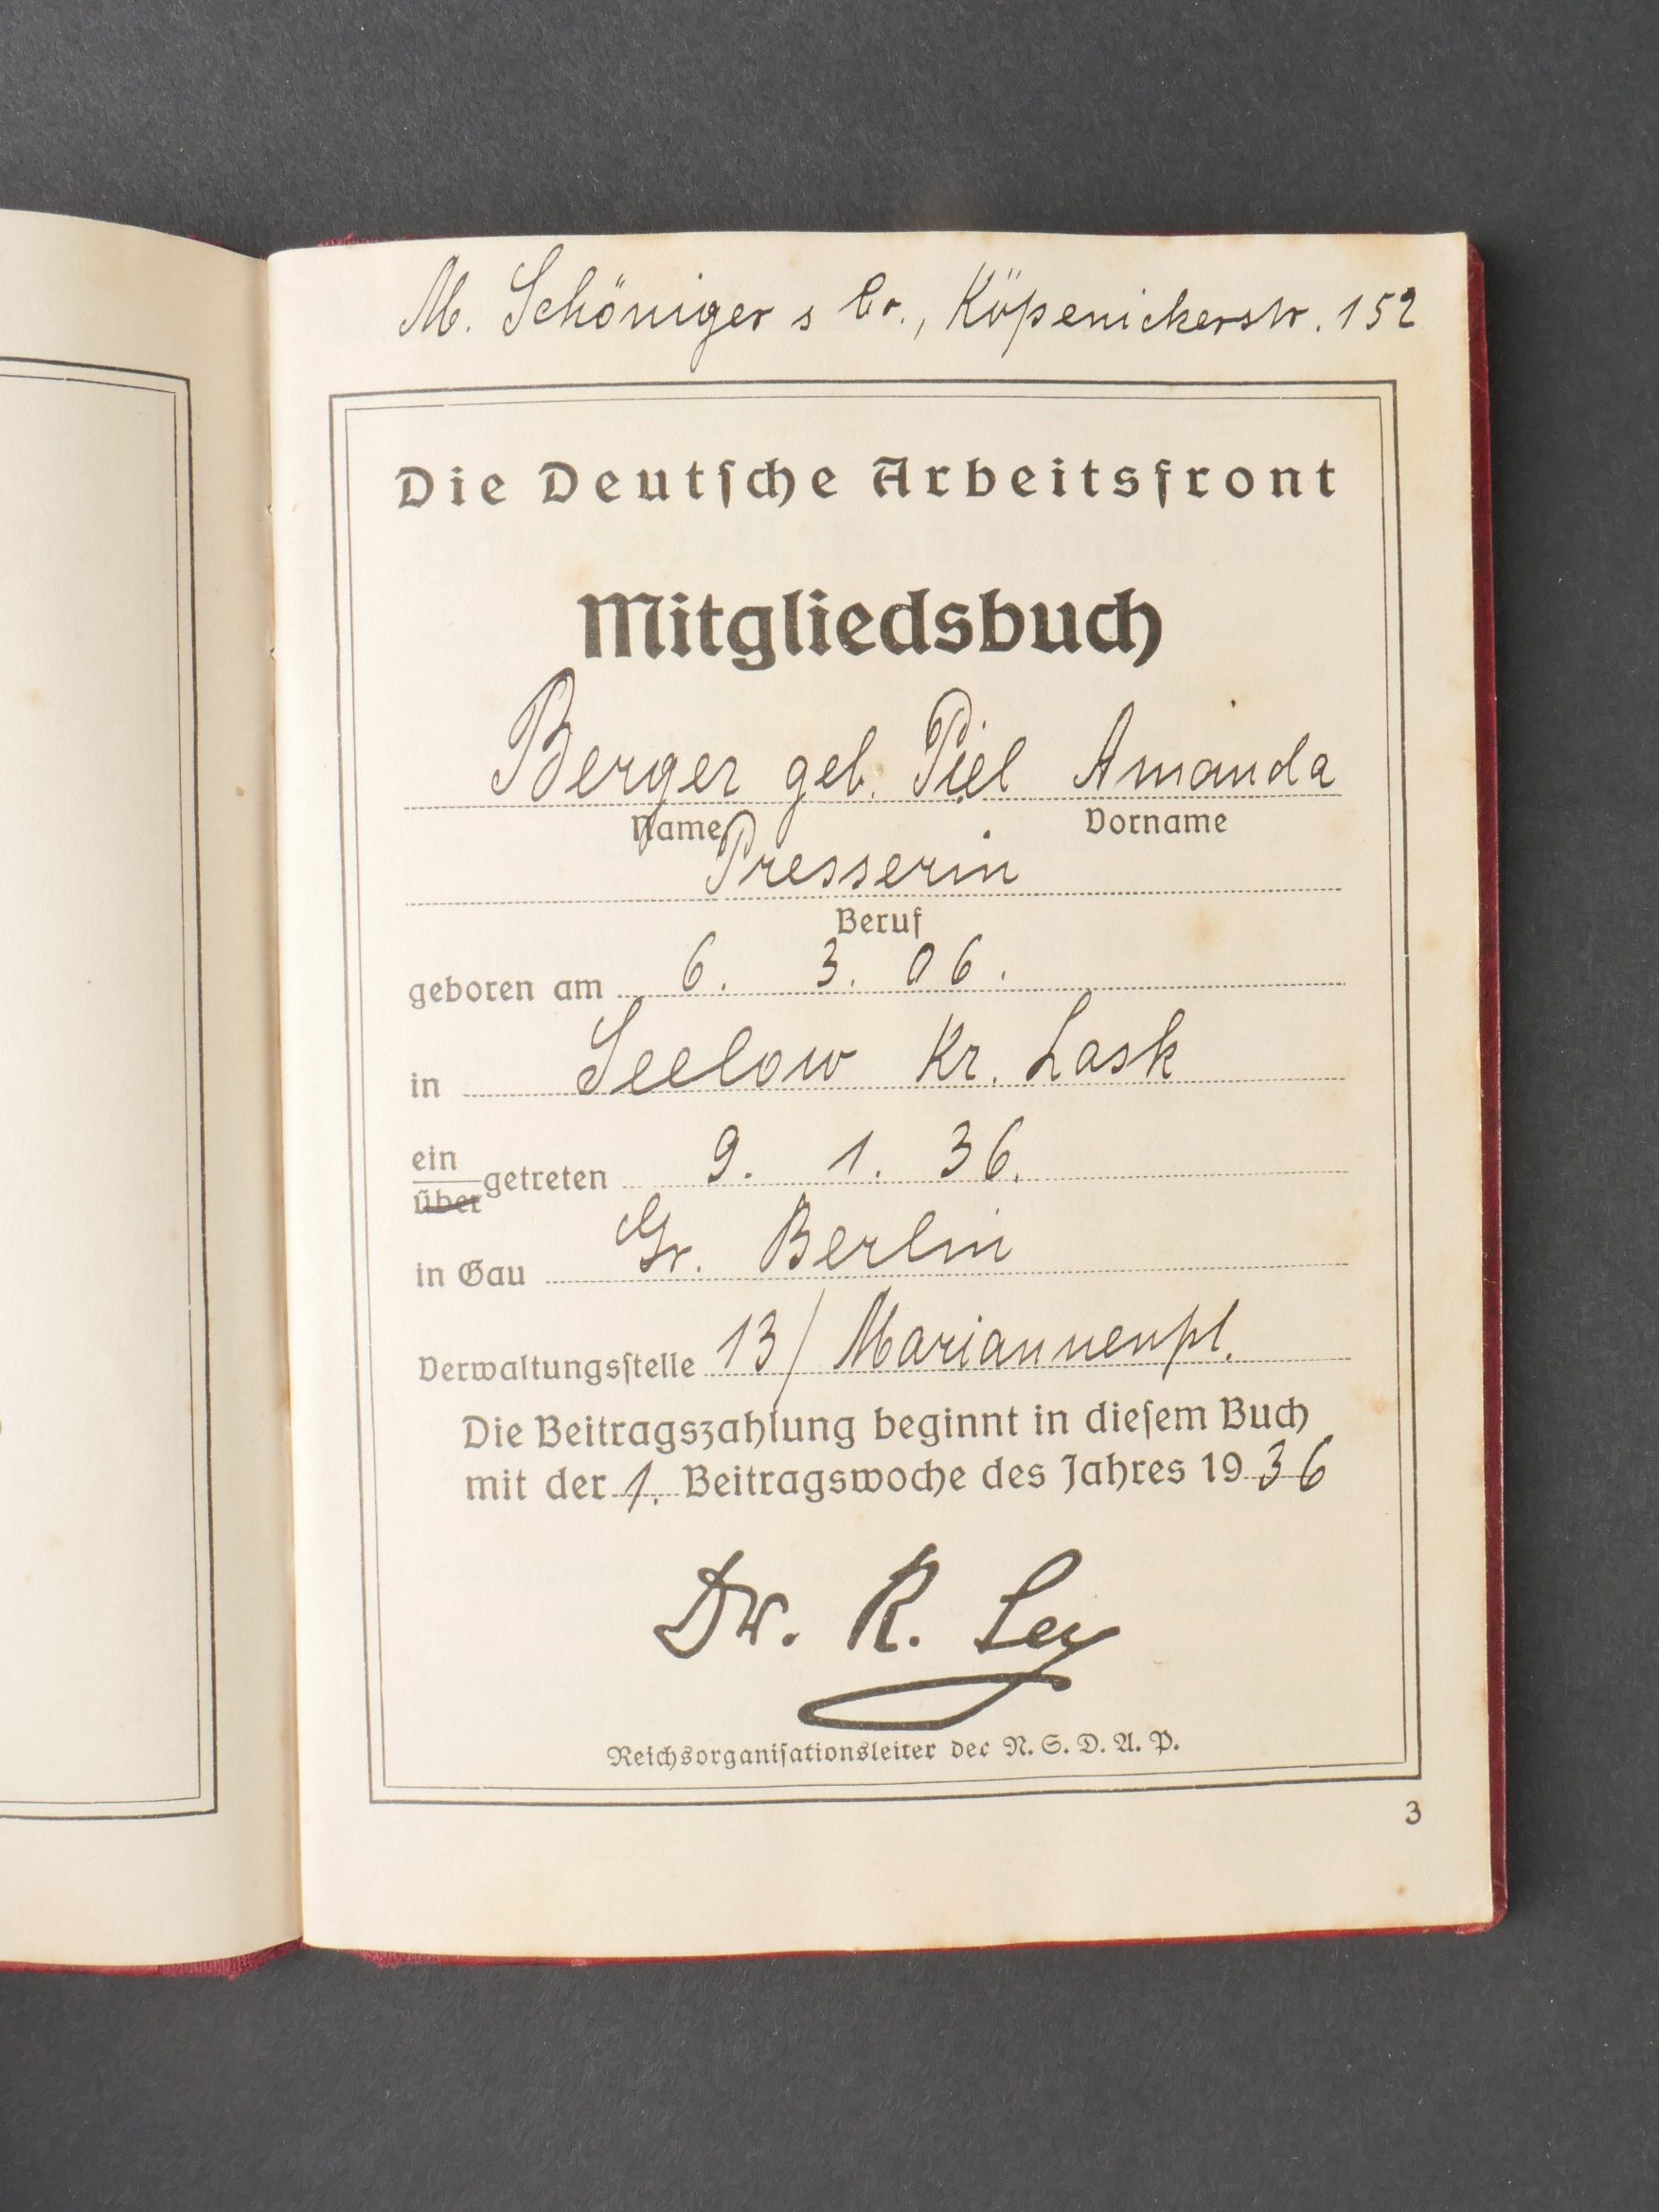 M. Schöniger s Co., Köpenickerstr. 152
Die Deutsche Arbeitsfront
Mitgliedsbuch
Berger geb. Piel Amanda
Name Vorname
Presserin
Beruf
geboren am 6. 3. 06.
in Seelow Kr. Lask
ein
über getreten 9. 1. 36.
in Gau Gr. Berlin
Verwaltungsstelle 13/ Mariannenpl.
Die Beitragszahlung beginnt in diesem Buch
mit der 1. Beitragswoche des Jahres 1936
Dr. R. Ley
Reichsorganisationsleiter der N. S. D. A. P.
3